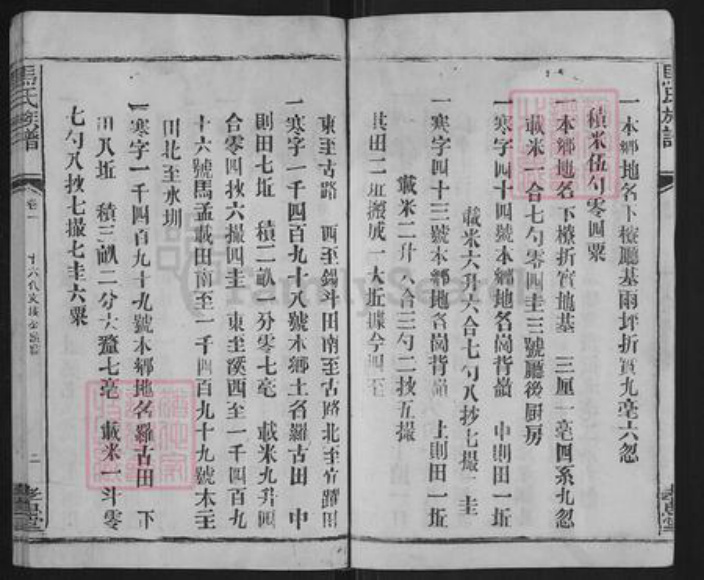 一本鄉地名下橑廳基兩坪折實九毫六忽
積米伍勺零四粟
一本鄉地名下橑折實地基 三厘一毫四系九忽
載米一合七勺零四圭三號廳後厨房
一寒字四十四號本鄉地名崗背嶺 中則田一坵
載米六升六合七勺八抄七撮 圭
一寒字四十三號本鄉地名崗背嶺 上則田一坵
載米二升八合三勺二抄五撮
其田二坵撥成一大坵據今四至
東至古路 西至鐲斗田南至古路北至官躍田
一寒字一千四百九十八號本鄉土名羅古田 中
則田七坵 積二畝一分零七毫 載米九升四
合零四抄六撮四圭 東至溪西至一千四百九
十六號馬孟載田南至一千四百九十九號本主
田北至水圳
一寒字一千四百九十九號本鄉地名羅古田 下
田八坵 積三畝二分六釐七毫 載米一斗零
七勺八抄七撮七圭六粟
馬氏族譜
卷一
二
孝思堂
馬氏族譜
孝思堂
FamilySearch